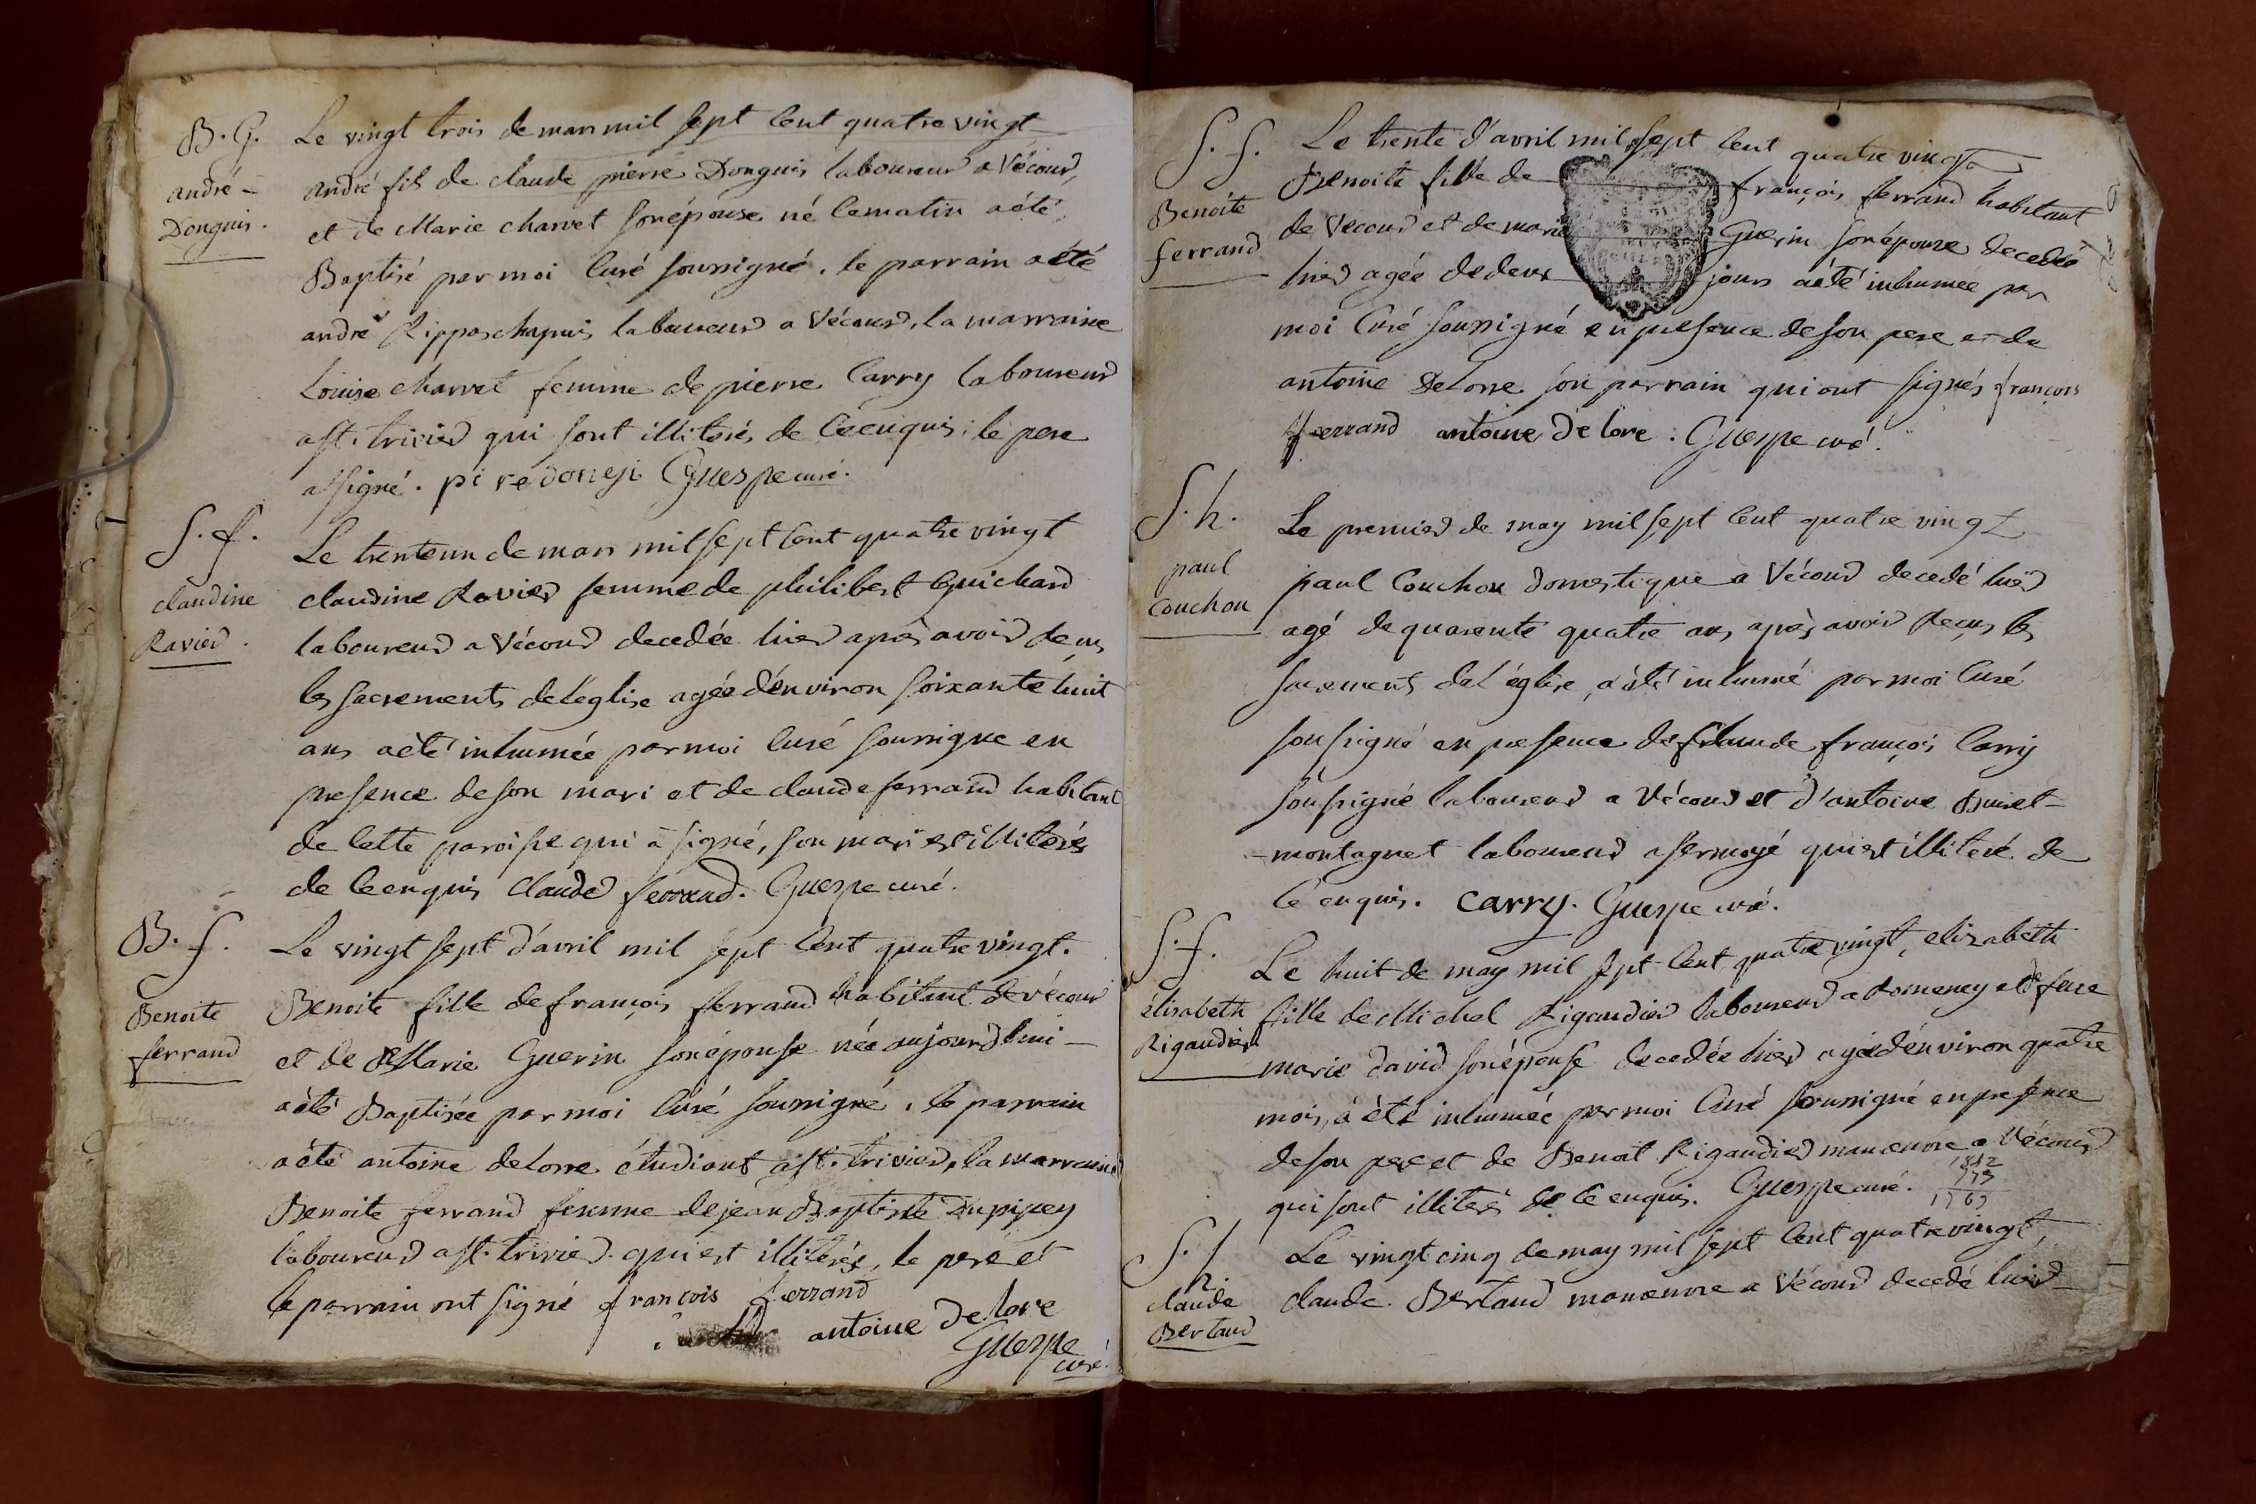 B. G.
andré
Donguis.
Le vingt trois de mars mil sept cent quatre vingt
andré fils de claude pierre Donguis laboureur a Vécour,
et de Marie charvet son épouse né le matin a été
Baptisé par moi curé soussigné. le parrain a été
andré Rippaschapuis laboureur a Vécour, la marraine
Louise charvet femme de pierre Carry laboureur
a st. trivier qui sont illiterés de ce enquis. le pere
a signé. Guespe curé.
S. f.
claudine
Ravier.
Le trente un de mars mil sept cent quatre vingt
claudine Ravier femme de philibert Guichard
laboureur a Vécour decedée hier après avoir reçus
les sacrements de l'église agée d'environ soixante huit
ans a été inhumée par moi curé soussigne en
presence de son mari et de claude ferrand habitant
de cette paroisse qui a signé, son mari est illiterés
de ce enquis Claude ferrand. Guespe curé.
B. f.
Benoite
ferrand
Le vingt sept d'avril mil sept cent quatre vingt.
Benoite fille de françois ferrand habitant de vécour
et de Marie Guerin son épouse née aujourd'hui
a été Baptisée par moi curé soussigné. le parrain
a été antoine delorre étudiant a st. trivier, la marraine
Benoite ferrand femme de jean Baptiste Dupipey
laboureur a st. trivier. qui est illiterée, le pere et
le parrain ont signé françois ferrand
antoine delore
Guespe
curé.
S. f.
Benoite
ferrand
Le trente d'avril mil sept cent quatre vingt
Benoite fille de françois ferrand habitant
de Vecour et de marie Guerin son épouse decedée
hier agée de deux jours a été inhumée par
moi curé soussigné en presence de son pere et de
antoine Delorre son parrain qui ont signés françois
ferrand antoine délore. Guespe curé.
S. h.
paul
Couchou
Le premier de may mil sept cent quatre vingt
paul Couchou domestique a Vécour decedé hier
agé de quarente quatre ans après avoir reçus les
sacements de l'église, a été inhumé par moi curé
soussigné en presence de claude françois Carry
soussigné laboureur a Vécour et d'antoine Buiret-
-montagnet laboureur a sermoyé qui est illiteré de
ce enquis. Carry. Guespe curé.
S. f.
élisabeth
Rigaudier
Le huit de may mil sept cent quatre vingt, elizabeth
fille de Michel Rigaudier laboureur a Romeney et de feue
marie david son épouse decedée hier agée d'environ quatre
mois, a été inhumée par moi Curé soussigné en presence
de son pere et de Benoit Rigaudier manœuvre a Vécour
qui sont illiterés de ce enquis. Guespe curé.
S. h.
claude
Bertaud
Le vingt cinq de may mil sept cent quatre vingt,
claude Bertaud manœuvre a Vécour decedé hier